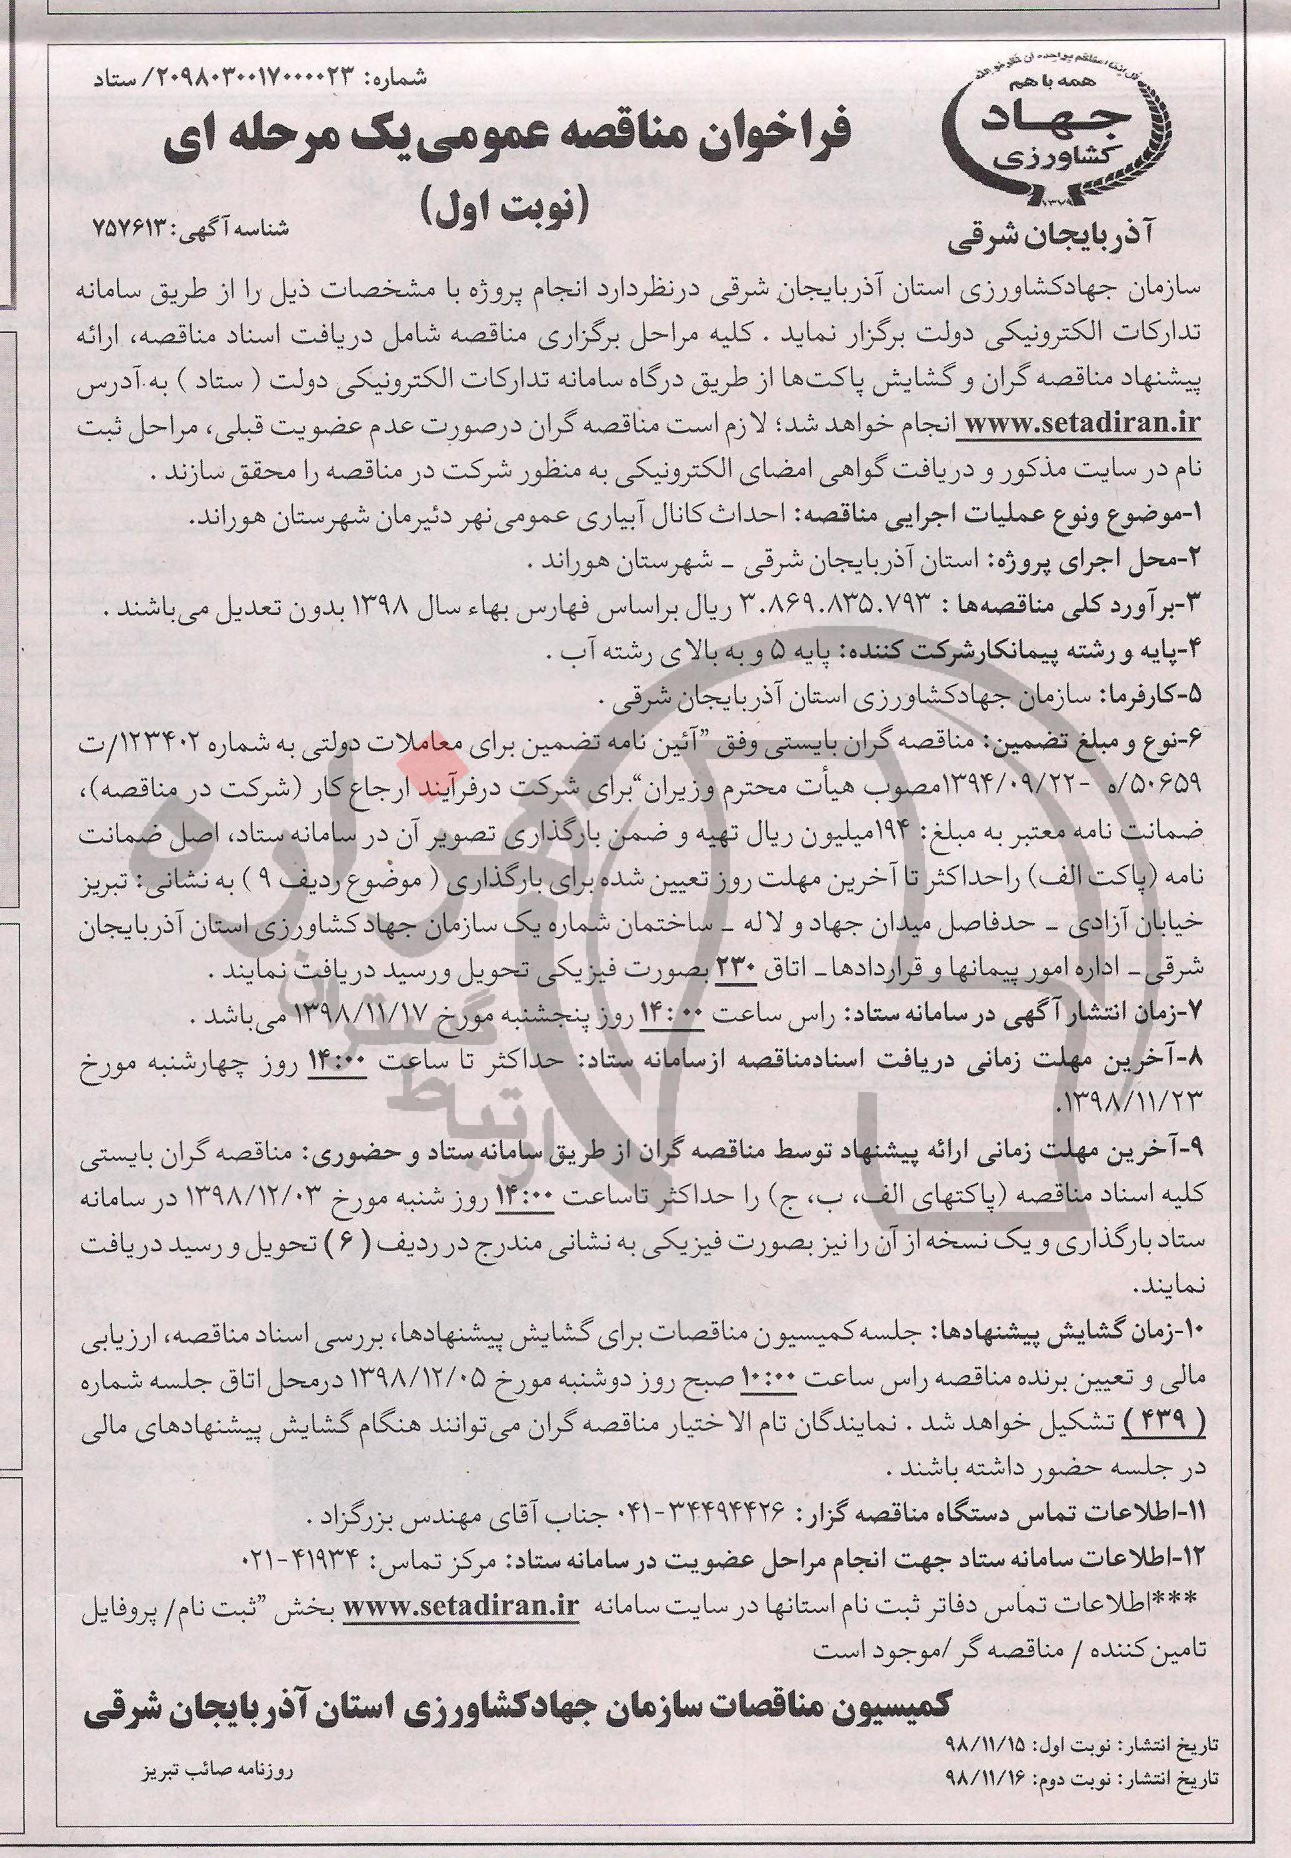 همه با هم
جهاد
کشاورزی
۱۳۷۹
آذربایجان شرقی
شماره: ۲۰۹۸۰۳۰۰۱۷۰۰۰۰۲۳/ ستاد
فراخوان مناقصه عمومی یک مرحله ای
(نوبت اول)
شناسه آگهی: ۷۵۷۶۱۳
سازمان جهادکشاورزی استان آذربایجان شرقی درنظردارد انجام پروژه با مشخصات ذیل را از طریق سامانه
تدارکات الکترونیکی دولت برگزار نماید . کلیه مراحل برگزاری مناقصه شامل دریافت اسناد مناقصه، ارائه
پیشنهاد مناقصه گران و گشایش پاکت‌ها از طریق درگاه سامانه تدارکات الکترونیکی دولت ( ستاد ) به آدرس
www.setadiran.ir انجام خواهد شد؛ لازم است مناقصه گران درصورت عدم عضویت قبلی، مراحل ثبت
نام در سایت مذکور و دریافت گواهی امضای الکترونیکی به منظور شرکت در مناقصه را محقق سازند .
۱-موضوع ونوع عملیات اجرایی مناقصه: احداث کانال آبیاری عمومی نهر دئیرمان شهرستان هوراند.
۲-محل اجرای پروژه: استان آذربایجان شرقی ـ شهرستان هوراند .
۳-برآورد کلی مناقصه‌ها : ۳.۸۶۹.۸۳۵.۷۹۳ ریال براساس فهارس بهاء سال ۱۳۹۸ بدون تعدیل می‌باشند .
۴-پایه و رشته پیمانکارشرکت کننده: پایه ۵ و به بالای رشته آب .
۵-کارفرما: سازمان جهادکشاورزی استان آذربایجان شرقی .
۶-نوع و مبلغ تضمین: مناقصه گران بایستی وفق "آئین نامه تضمین برای معاملات دولتی به شماره ۱۲۳۴۰۲/ت
۵۰۶۵۹/ه -۱۳۹۴/۰۹/۲۲مصوب هیأت محترم وزیران"برای شرکت درفرآیند ارجاع کار (شرکت در مناقصه)،
ضمانت نامه معتبر به مبلغ: ۱۹۴میلیون ریال تهیه و ضمن بارگذاری تصویر آن در سامانه ستاد، اصل ضمانت
نامه (پاکت الف) راحداکثر تا آخرین مهلت روز تعیین شده برای بارگذاری ( موضوع ردیف ۹ ) به نشانی: تبریز
خیابان آزادی ـ حدفاصل میدان جهاد و لاله ـ ساختمان شماره یک سازمان جهادکشاورزی استان آذربایجان
شرقی ـ اداره امور پیمانها و قراردادها ـ اتاق ۲۳۰ بصورت فیزیکی تحویل ورسید دریافت نمایند .
۷-زمان انتشار آگهی در سامانه ستاد: راس ساعت ۱۴:۰۰ روز پنجشنبه مورخ ۱۳۹۸/۱۱/۱۷ می‌باشد .
۸-آخرین مهلت زمانی دریافت اسنادمناقصه ازسامانه ستاد: حداکثر تا ساعت ۱۴:۰۰ روز چهارشنبه مورخ
۱۳۹۸/۱۱/۲۳.
۹-آخرین مهلت زمانی ارائه پیشنهاد توسط مناقصه گران از طریق سامانه ستاد و حضوری: مناقصه گران بایستی
کلیه اسناد مناقصه (پاکتهای الف، ب، ج) را حداکثر تاساعت ۱۴:۰۰ روز شنبه مورخ ۱۳۹۸/۱۲/۰۳ در سامانه
ستاد بارگذاری و یک نسخه از آن را نیز بصورت فیزیکی به نشانی مندرج در ردیف (۶) تحویل و رسید دریافت
نمایند.
۱۰-زمان گشایش پیشنهادها: جلسه کمیسیون مناقصات برای گشایش پیشنهادها، بررسی اسناد مناقصه، ارزیابی
مالی و تعیین برنده مناقصه راس ساعت ۱۰:۰۰ صبح روز دوشنبه مورخ ۱۳۹۸/۱۲/۰۵ درمحل اتاق جلسه شماره
( ۴۳۹ ) تشکیل خواهد شد . نمایندگان تام الاختیار مناقصه گران می‌توانند هنگام گشایش پیشنهادهای مالی
در جلسه حضور داشته باشند .
۱۱-اطلاعات تماس دستگاه مناقصه گزار: ۳۴۴۹۴۴۲۶-۰۴۱ جناب آقای مهندس بزرگزاد .
۱۲-اطلاعات سامانه ستاد جهت انجام مراحل عضویت در سامانه ستاد: مرکز تماس: ۴۱۹۳۴-۰۲۱
***اطلاعات تماس دفاتر ثبت نام استانها در سایت سامانه www.setadiran.ir بخش "ثبت نام/ پروفایل
تامین کننده / مناقصه گر /موجود است
کمیسیون مناقصات سازمان جهادکشاورزی استان آذربایجان شرقی
تاریخ انتشار: نوبت اول: ۹۸/۱۱/۱۵
تاریخ انتشار: نوبت دوم: ۹۸/۱۱/۱۶
روزنامه صائب تبریز
هزاره
ارتباط